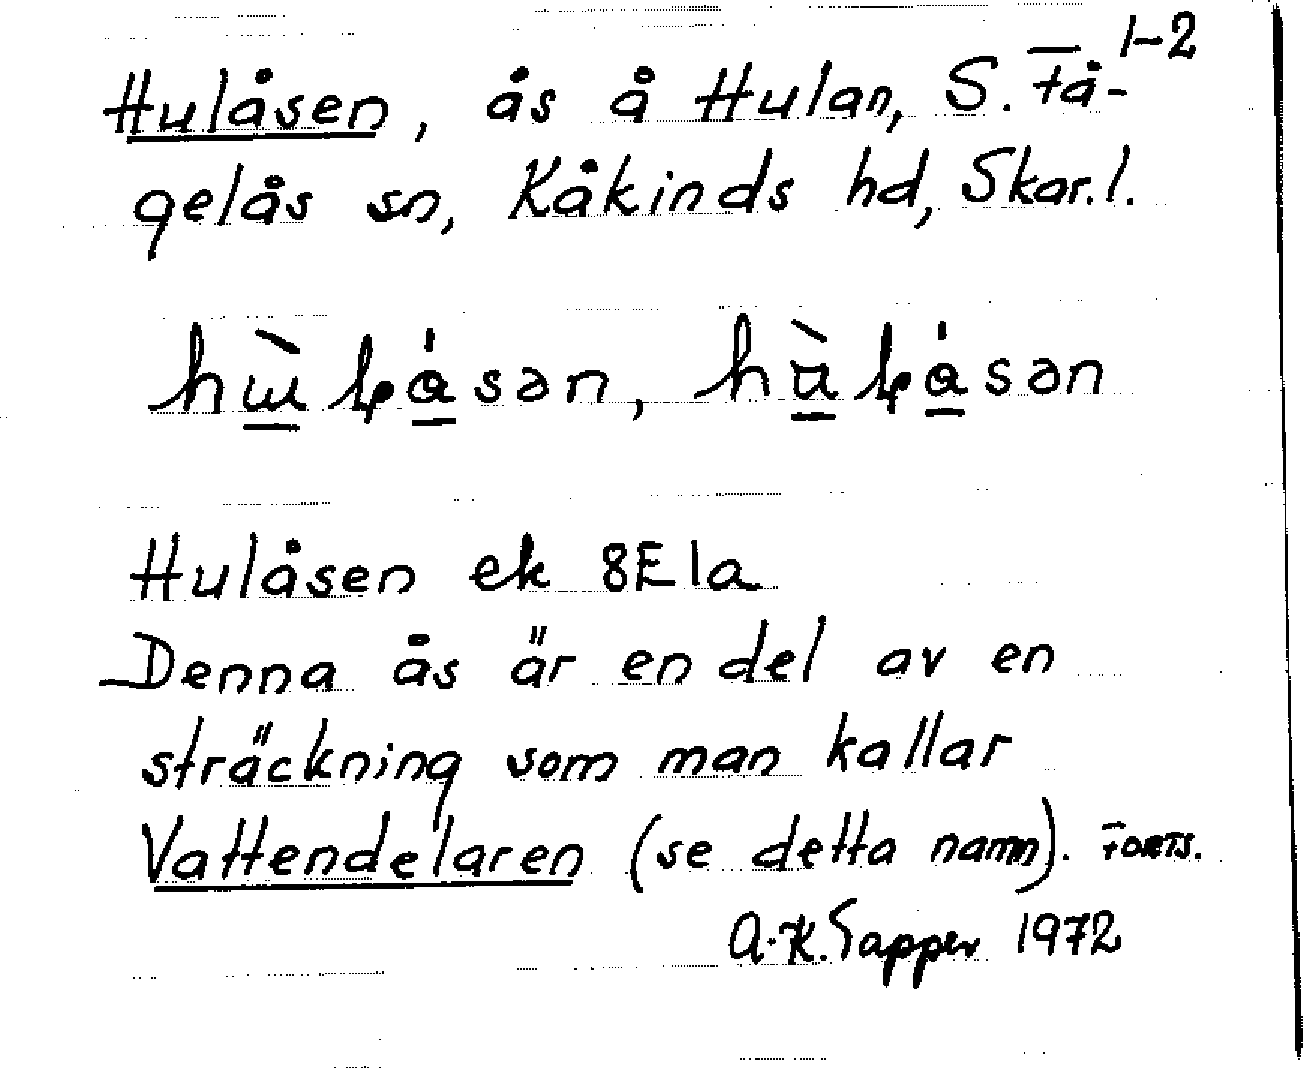 1-2
Hulåsen, ås å Hulan, S. Få-
gelås sn, Kåkinds hd, Skar. l.
hɯ̀ɽåsən, hùɽåsən
Hulåsen ek 8E1a
Denna ås är en del av en
sträckning som man kallar
Vattendelaren (se detta namn). FORTS.
A.-K. Sapper 1972